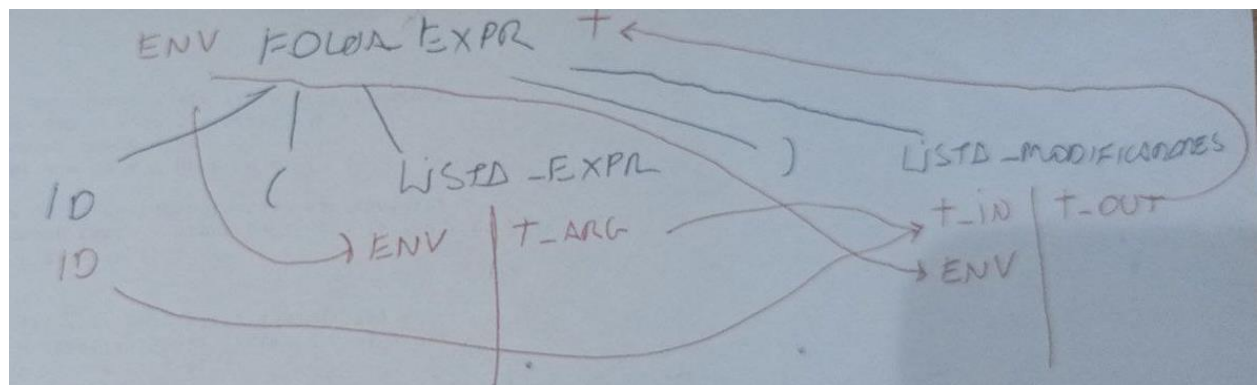 ENV FOLHA EXPR T
ID ( LISTA_EXPR ) LISTA_MODIFICADORES
ID ENV T_ARG T_IN T_OUT
ENV